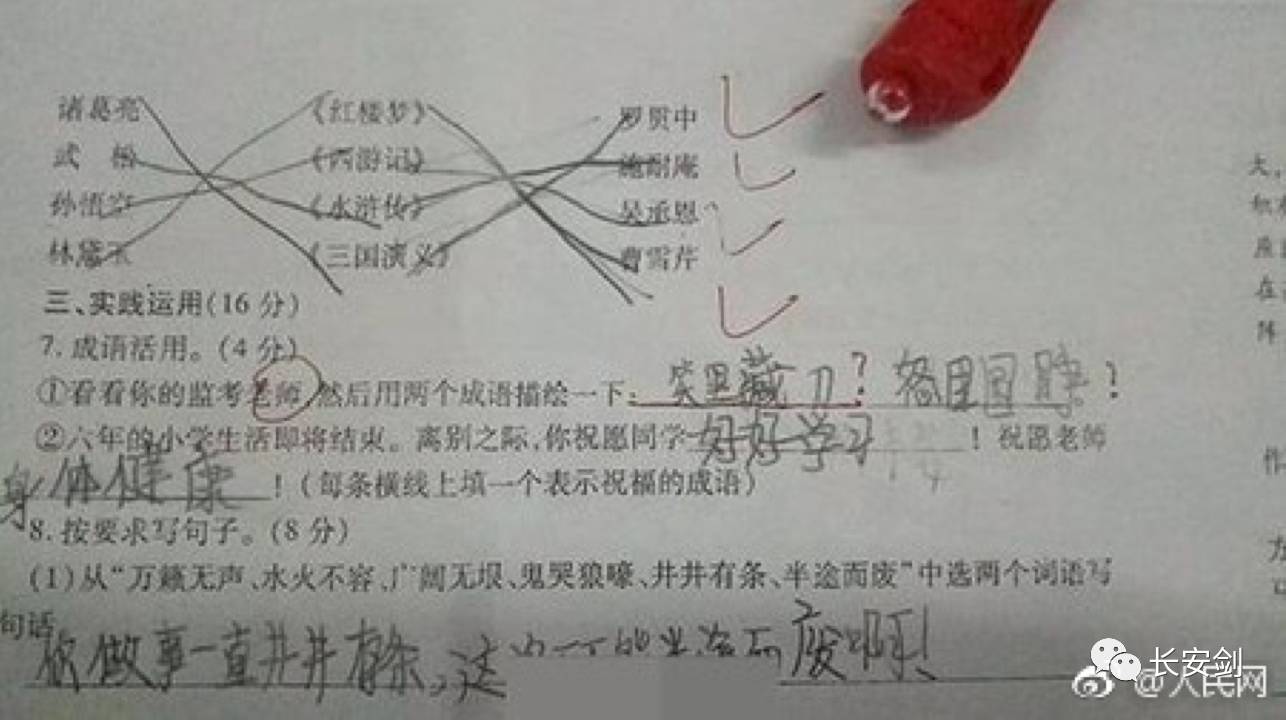 诸葛亮 《红楼梦》 罗贯中
武 松 《西游记》 施耐庵
孙悟空 《水浒传》 吴承恩
林黛玉 《三国演义》 曹雪芹
三、实践运用(16分)
7.成语活用。(4分)
①看看你的监考老师,然后用两个成语描绘一下: 笑里藏刀?
②六年的小学生活即将结束。离别之际,你祝愿同学 好好学习 ! 祝愿老师
身体健康 !(每条横线上填一个表示祝福的成语)
8.按要求写句子。(8分)
(1)从“万籁无声、水火不容、广阔无垠、鬼哭狼嚎、井井有条、半途而废”中选两个词语写
句话
你做事一直井井有条,这 半途而废啊!
大,
在
阵
作
长安剑
@人民网